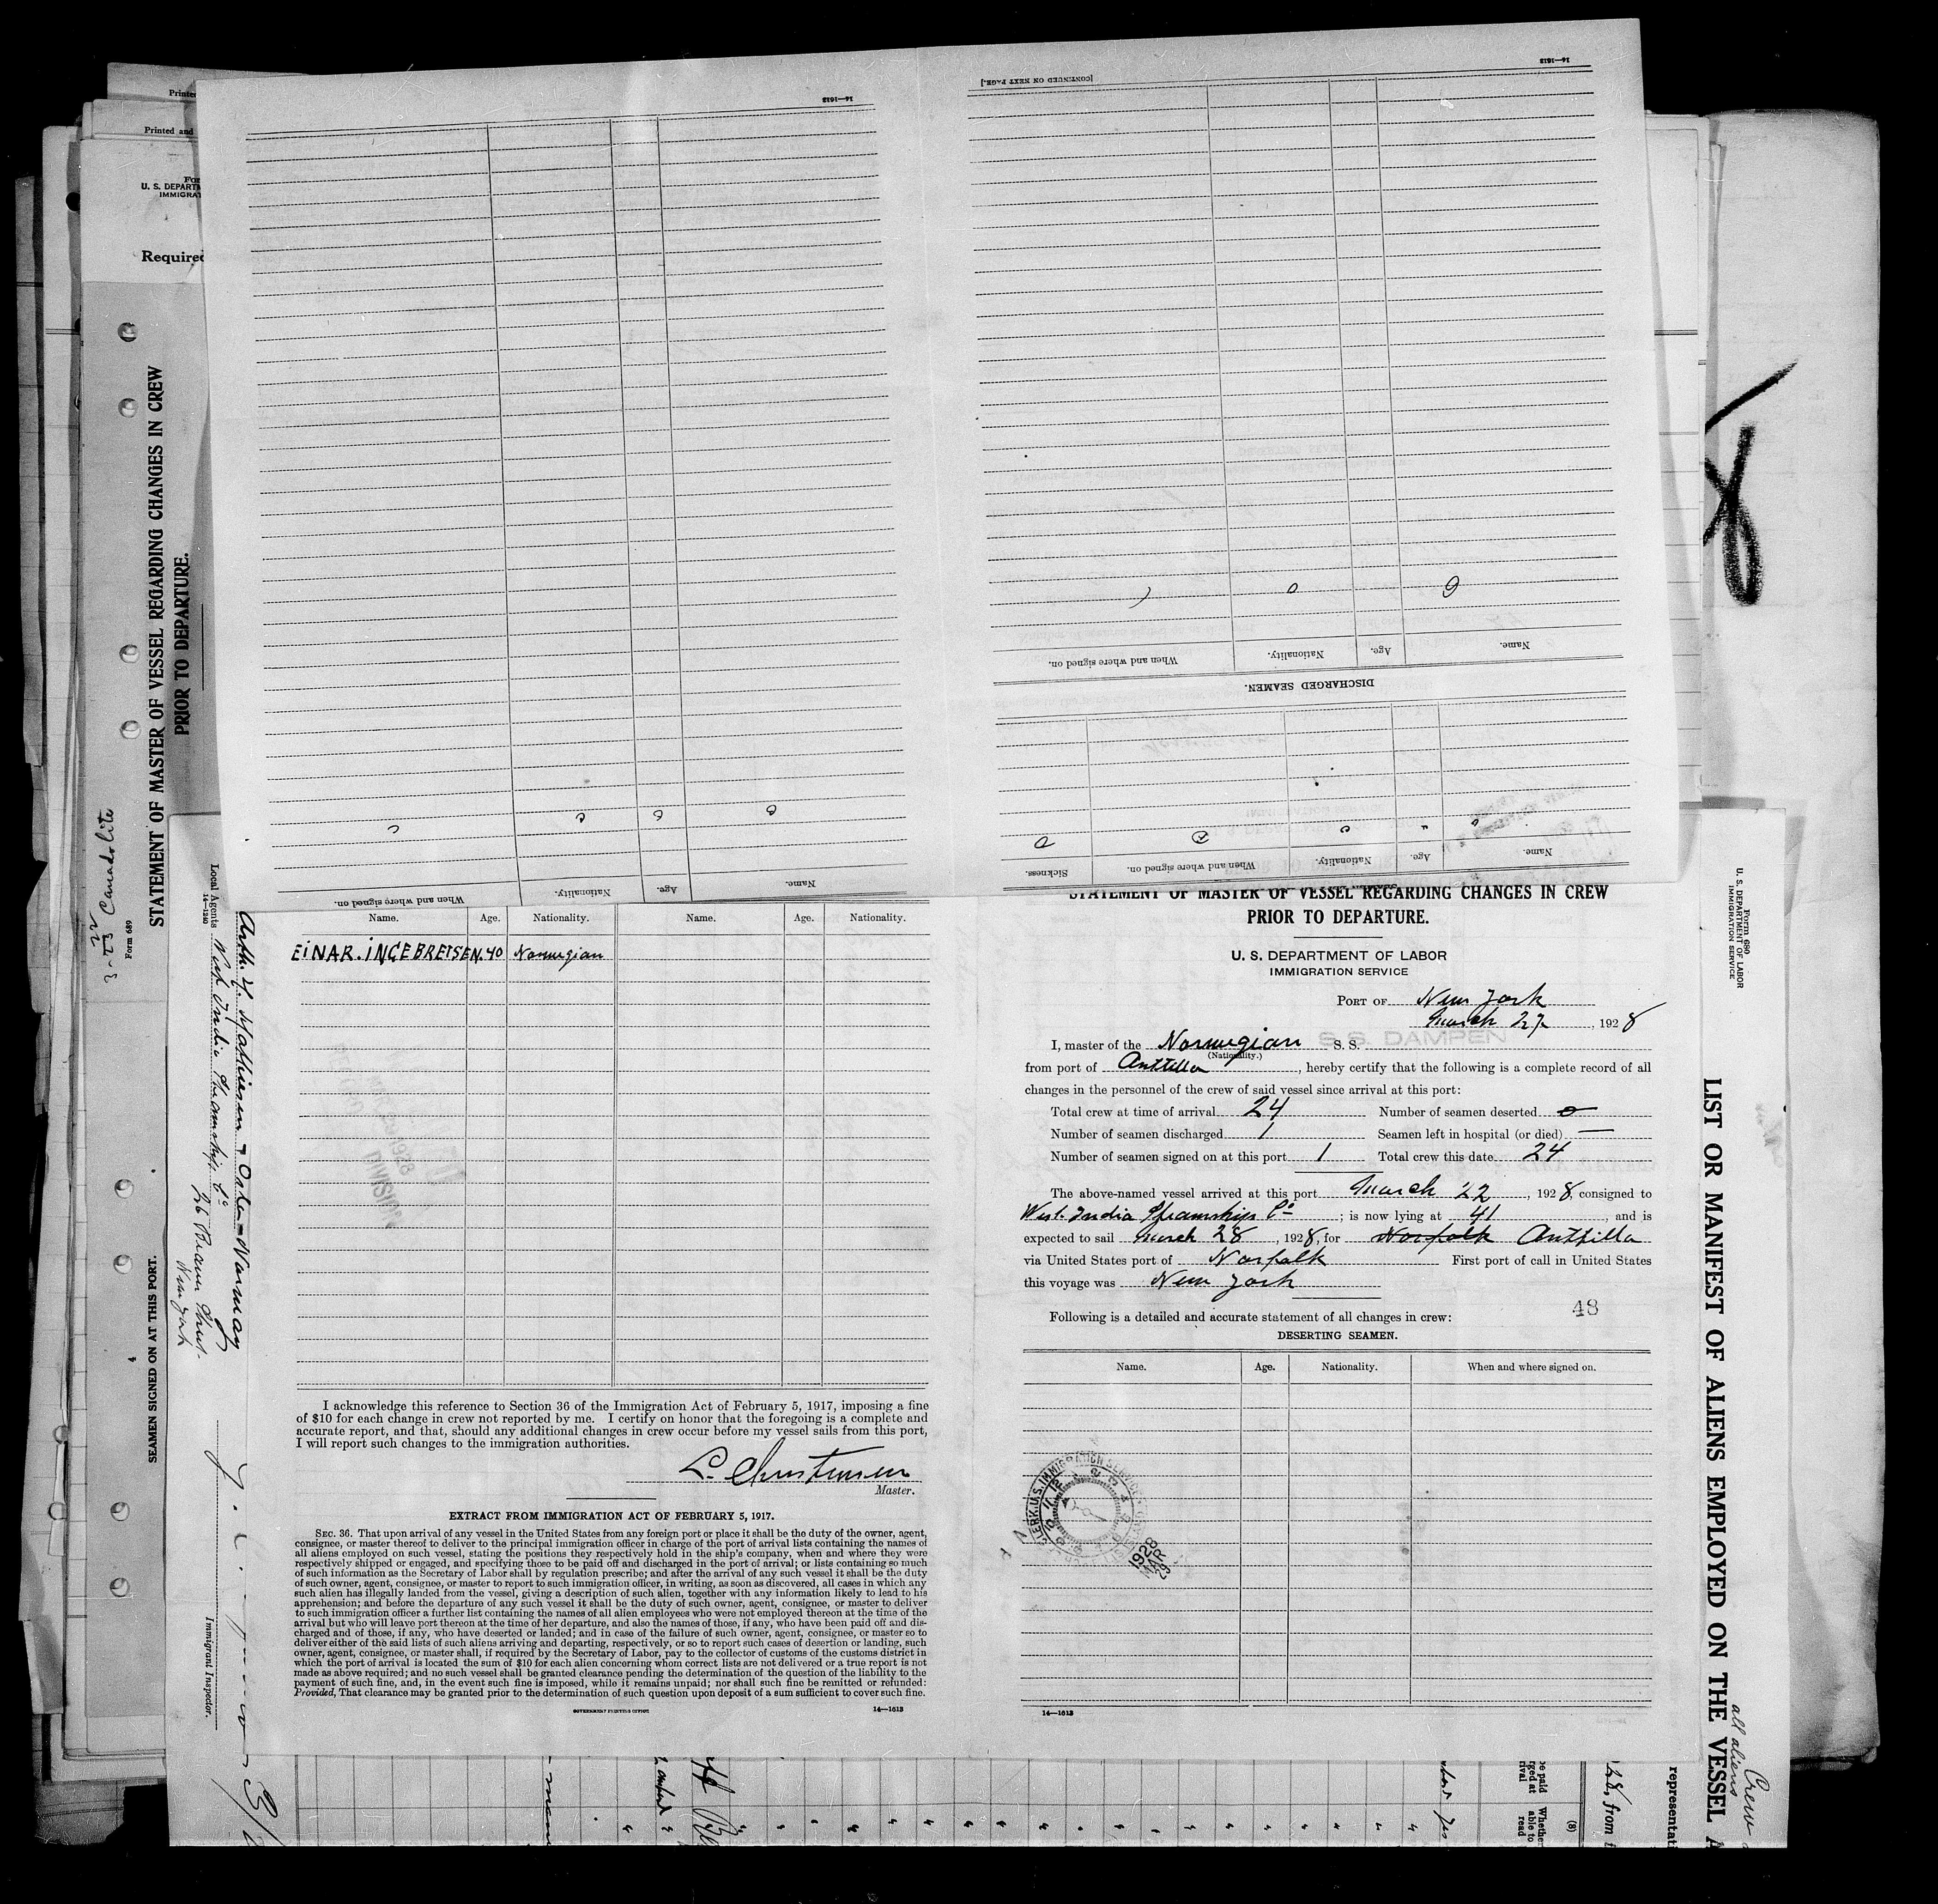 Printed
Printed and
U. S. DEPARTM
IMMIGRAT
Required
STATEMENT OF MASTER OF VESSEL REGARDING CHANGES IN CREW
PRIOR TO DEPARTURE.
Canadolite
Form 689
SEAMEN SIGNED ON AT THIS PORT.
4
14—1240
Local Agents
West India Steamship Co
26 Beaver Street
New York
Immigrant Inspector.
14—1613
Name.
Age.
Nationality.
When and where signed on.
[CONTINUED ON NEXT PAGE.]
14—1613
DISCHARGED SEAMEN.
Name.
Age.
Nationality.
When and where signed on.
Name.
Age.
Nationality.
When and where signed on.
Sickness.
Name. Age. Nationality. Name. Age. Nationality.
EINAR. INGEBRETSEN. 40 Norwegian
I acknowledge this reference to Section 36 of the Immigration Act of February 5, 1917, imposing a fine
of $10 for each change in crew not reported by me. I certify on honor that the foregoing is a complete and
accurate report, and that, should any additional changes in crew occur before my vessel sails from this port,
I will report such changes to the immigration authorities.
L. Christensen
Master.
EXTRACT FROM IMMIGRATION ACT OF FEBRUARY 5, 1917.
SEC. 36. That upon arrival of any vessel in the United States from any foreign port or place it shall be the duty of the owner, agent,
consignee, or master thereof to deliver to the principal immigration officer in charge of the port of arrival lists containing the names of
all aliens employed on such vessel, stating the positions they respectively hold in the ship's company, when and where they were
respectively shipped or engaged, and specifying those to be paid off and discharged in the port of arrival; or lists containing so much
of such information as the Secretary of Labor shall by regulation prescribe; and after the arrival of any such vessel it shall be the duty
of such owner, agent, consignee, or master to report to such immigration officer, in writing, as soon as discovered, all cases in which any
such alien has illegally landed from the vessel, giving a description of such alien, together with any information likely to lead to his
apprehension; and before the departure of any such vessel it shall be the duty of such owner, agent, consignee, or master to deliver
to such immigration officer a further list containing the names of all alien employees who were not employed thereon at the time of the
arrival but who will leave port thereon at the time of her departure, and also the names of those, if any, who have been paid off and dis-
charged and of those, if any, who have deserted or landed; and in case of the failure of such owner, agent, consignee, or master so to
deliver either of the said lists of such aliens arriving and departing, respectively, or so to report such cases of desertion or landing, such
owner, agent, consignee, or master shall, if required by the Secretary of Labor, pay to the collector of customs of the customs district in
which the port of arrival is located the sum of $10 for each alien concerning whom correct lists are not delivered or a true report is not
made as above required; and no such vessel shall be granted clearance pending the determination of the question of the liability to the
payment of such fine, and, in the event such fine is imposed, while it remains unpaid; nor shall such fine be remitted or refunded:
Provided, That clearance may be granted prior to the determination of such question upon deposit of a sum sufficient to cover such fine.
GOVERNMENT PRINTING OFFICE 14—1613
STATEMENT OF MASTER OF VESSEL REGARDING CHANGES IN CREW
PRIOR TO DEPARTURE.
U. S. DEPARTMENT OF LABOR
IMMIGRATION SERVICE
PORT OF New York
March 27, 1928
I, master of the Norwegian S. S. S.S. DAMPEN
(Nationality.)
from port of Anttilla, hereby certify that the following is a complete record of all
changes in the personnel of the crew of said vessel since arrival at this port:
Total crew at time of arrival 24 Number of seamen deserted 0
Number of seamen discharged 1 Seamen left in hospital (or died) —
Number of seamen signed on at this port 1 Total crew this date 24
The above-named vessel arrived at this port March 22, 1928, consigned to
West. India Steamship Co; is now lying at 41, and is
expected to sail March 28, 1928, for Norfolk Anttilla
via United States port of Norfolk First port of call in United States
this voyage was New York
48
Following is a detailed and accurate statement of all changes in crew:
DESERTING SEAMEN.
Name. Age. Nationality. When and where signed on.
1928
MAR
29
14—1613
Form 680
U. S. DEPARTMENT OF LABOR
IMMIGRATION SERVICE
LIST OR MANIFEST OF ALIENS EMPLOYED ON THE VESSEL A
Crew
all aliens
representat
28, from
(8)
Whether
able to
read